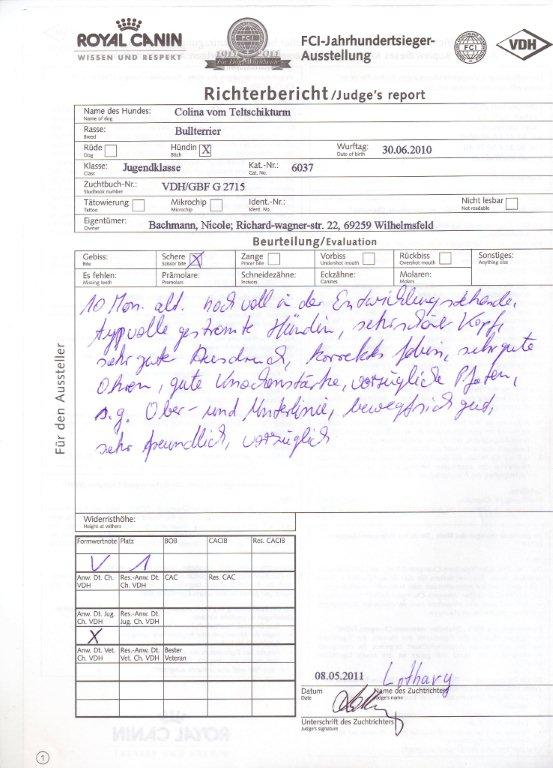 ROYAL CANIN
WISSEN UND RESPEKT
FCI
FCI-Jahrhundertsieger-
Ausstellung
FCI
VDH
Richterbericht/Judge's report
Name des Hundes: Colina vom Teltschikturm
Name of dog
Rasse: Bullterrier
Breed
Rüde Hündin X Wurftag: 30.06.2010
Dog Bitch Date of birth
Klasse: Jugendklasse Kat.-Nr.: 6037
Class Cat. No.
Zuchtbuch-Nr.: VDH/GBF G 2715
Studbook number
Tätowierung Mikrochip Ident.-Nr.: Nicht lesbar
Tattoo Microchip Ident. No. Not readable
Eigentümer: Bachmann, Nicole; Richard-wagner-str. 22, 69259 Wilhelmsfeld
Owner
Beurteilung/Evaluation
Gebiss: Schere X Zange Vorbiss Rückbiss Sonstiges:
Bite Scissor bite Pincer bite Undershot mouth Overshot mouth Anything else
Es fehlen: Prämolare: Schneidezähne: Eckzähne: Molaren:
Missing teeth Premolars Incisors Canines Molars
10 Mon. alt. noch voll in der Entwicklung stehende,
typvolle gestromte Hündin, sehr schöner Kopf,
sehr guter Ausdruck, korrektes sehr gute
Ohren, gute Knochenstärke, vorzügliche Pfoten,
s.g. Ober- und Unterlinie, bewegt sich gut,
sehr freundlich, vorzüglich
Für den Aussteller
Widerristhöhe:
Height at withers
Formwertnote Platz BOB CACIB Res. CACIB
V 1
Anw. Dt. Ch. VDH Res.-Anw. Dt. Ch. VDH CAC Res. CAC
Anw. Dt. Jug. Ch. VDH Res.-Anw. Dt. Jug. Ch. VDH
X
Anw. Dt. Vet. Ch. VDH Res.-Anw. Dt. Vet. Ch. VDH Bester Veteran
08.05.2011 Lothary
Datum Name des Zuchtrichters
Date Judge's name
Unterschrift des Zuchtrichters
Judge's signature
ROYAL CANIN
1